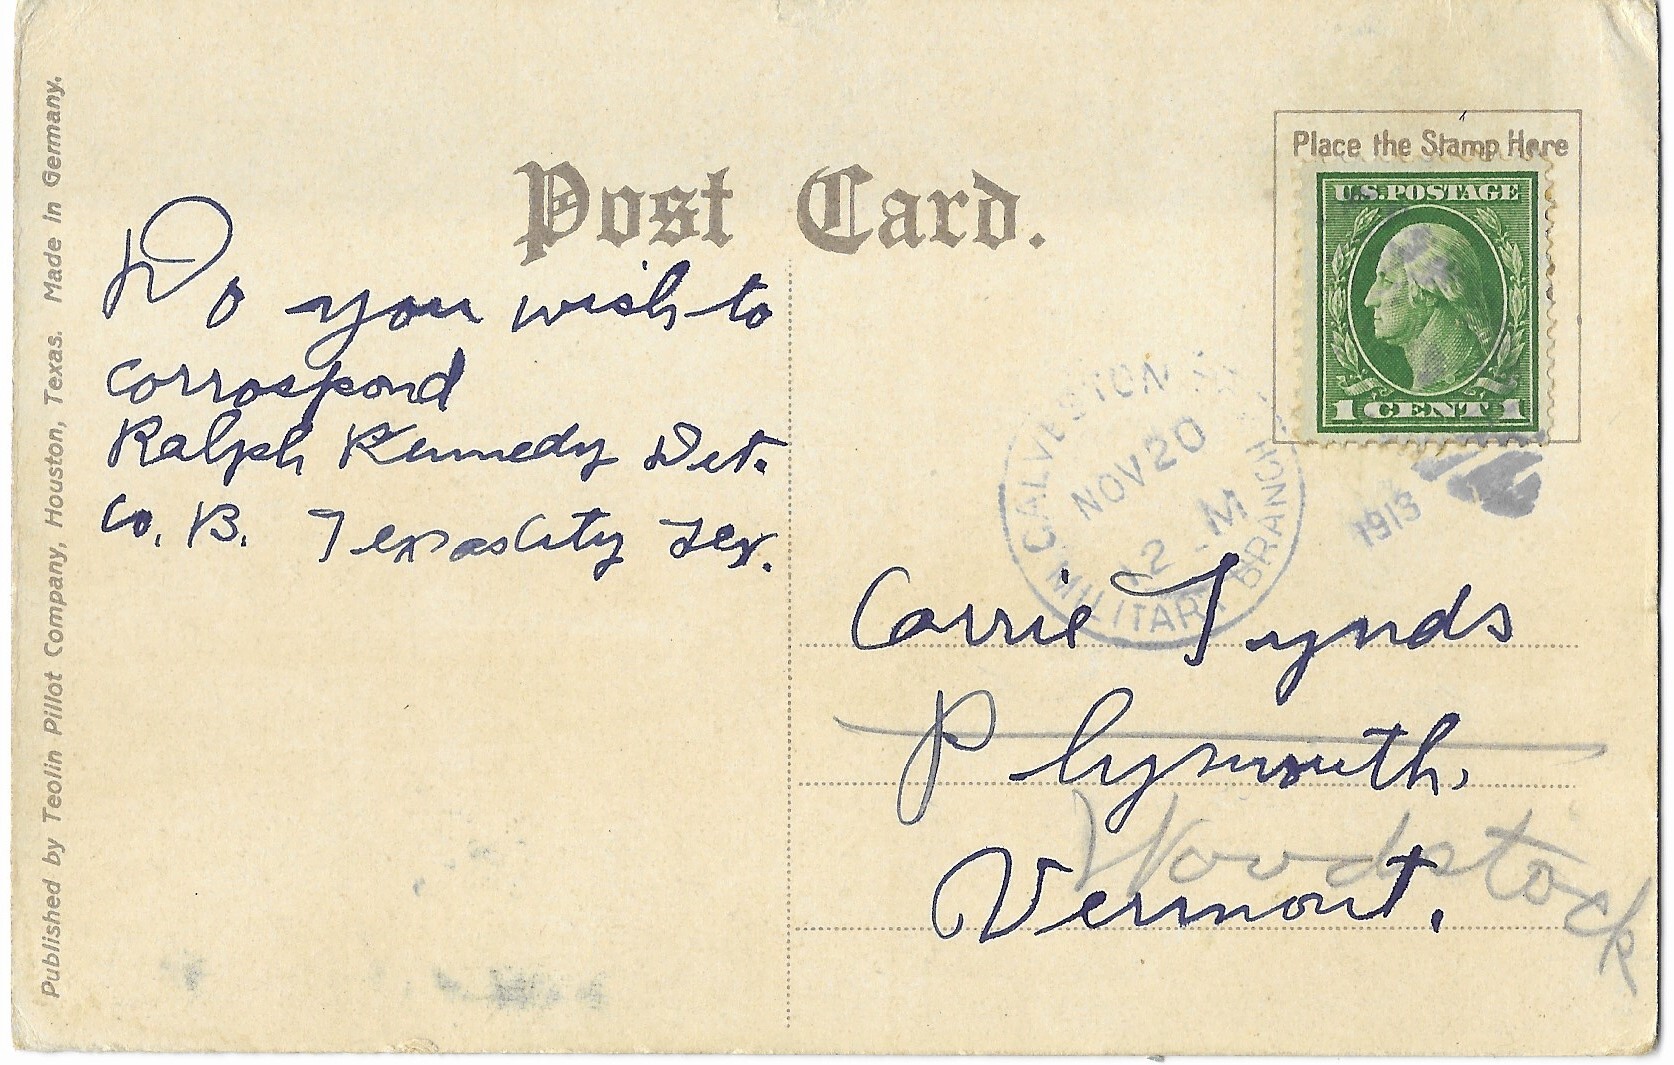 Published by Teolin Pillot Company, Houston, Texas. Made in Germany.
Post Card.
Place the Stamp Here
U.S. POSTAGE
1 CENT 1
GALVESTON
NOV 20
12 - M
1913
MILITARY BRANCH
Do you wish to
corrospond
Ralph Kennedy Det.
Co. B. Texas City Tex.
Carrie Tynds
Plymouth,
Woodstock
Vermont.